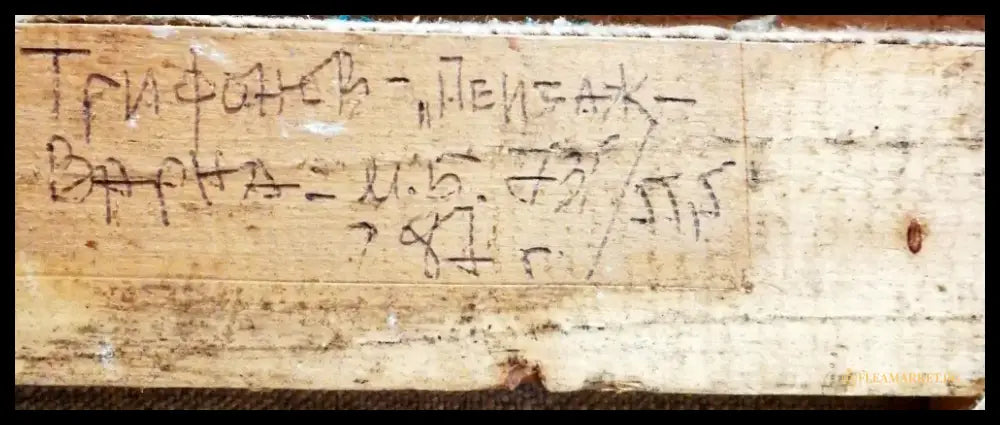 Трифонов - „Пейзаж -
Варна - м.б.
87 г.
FLEAMARKET